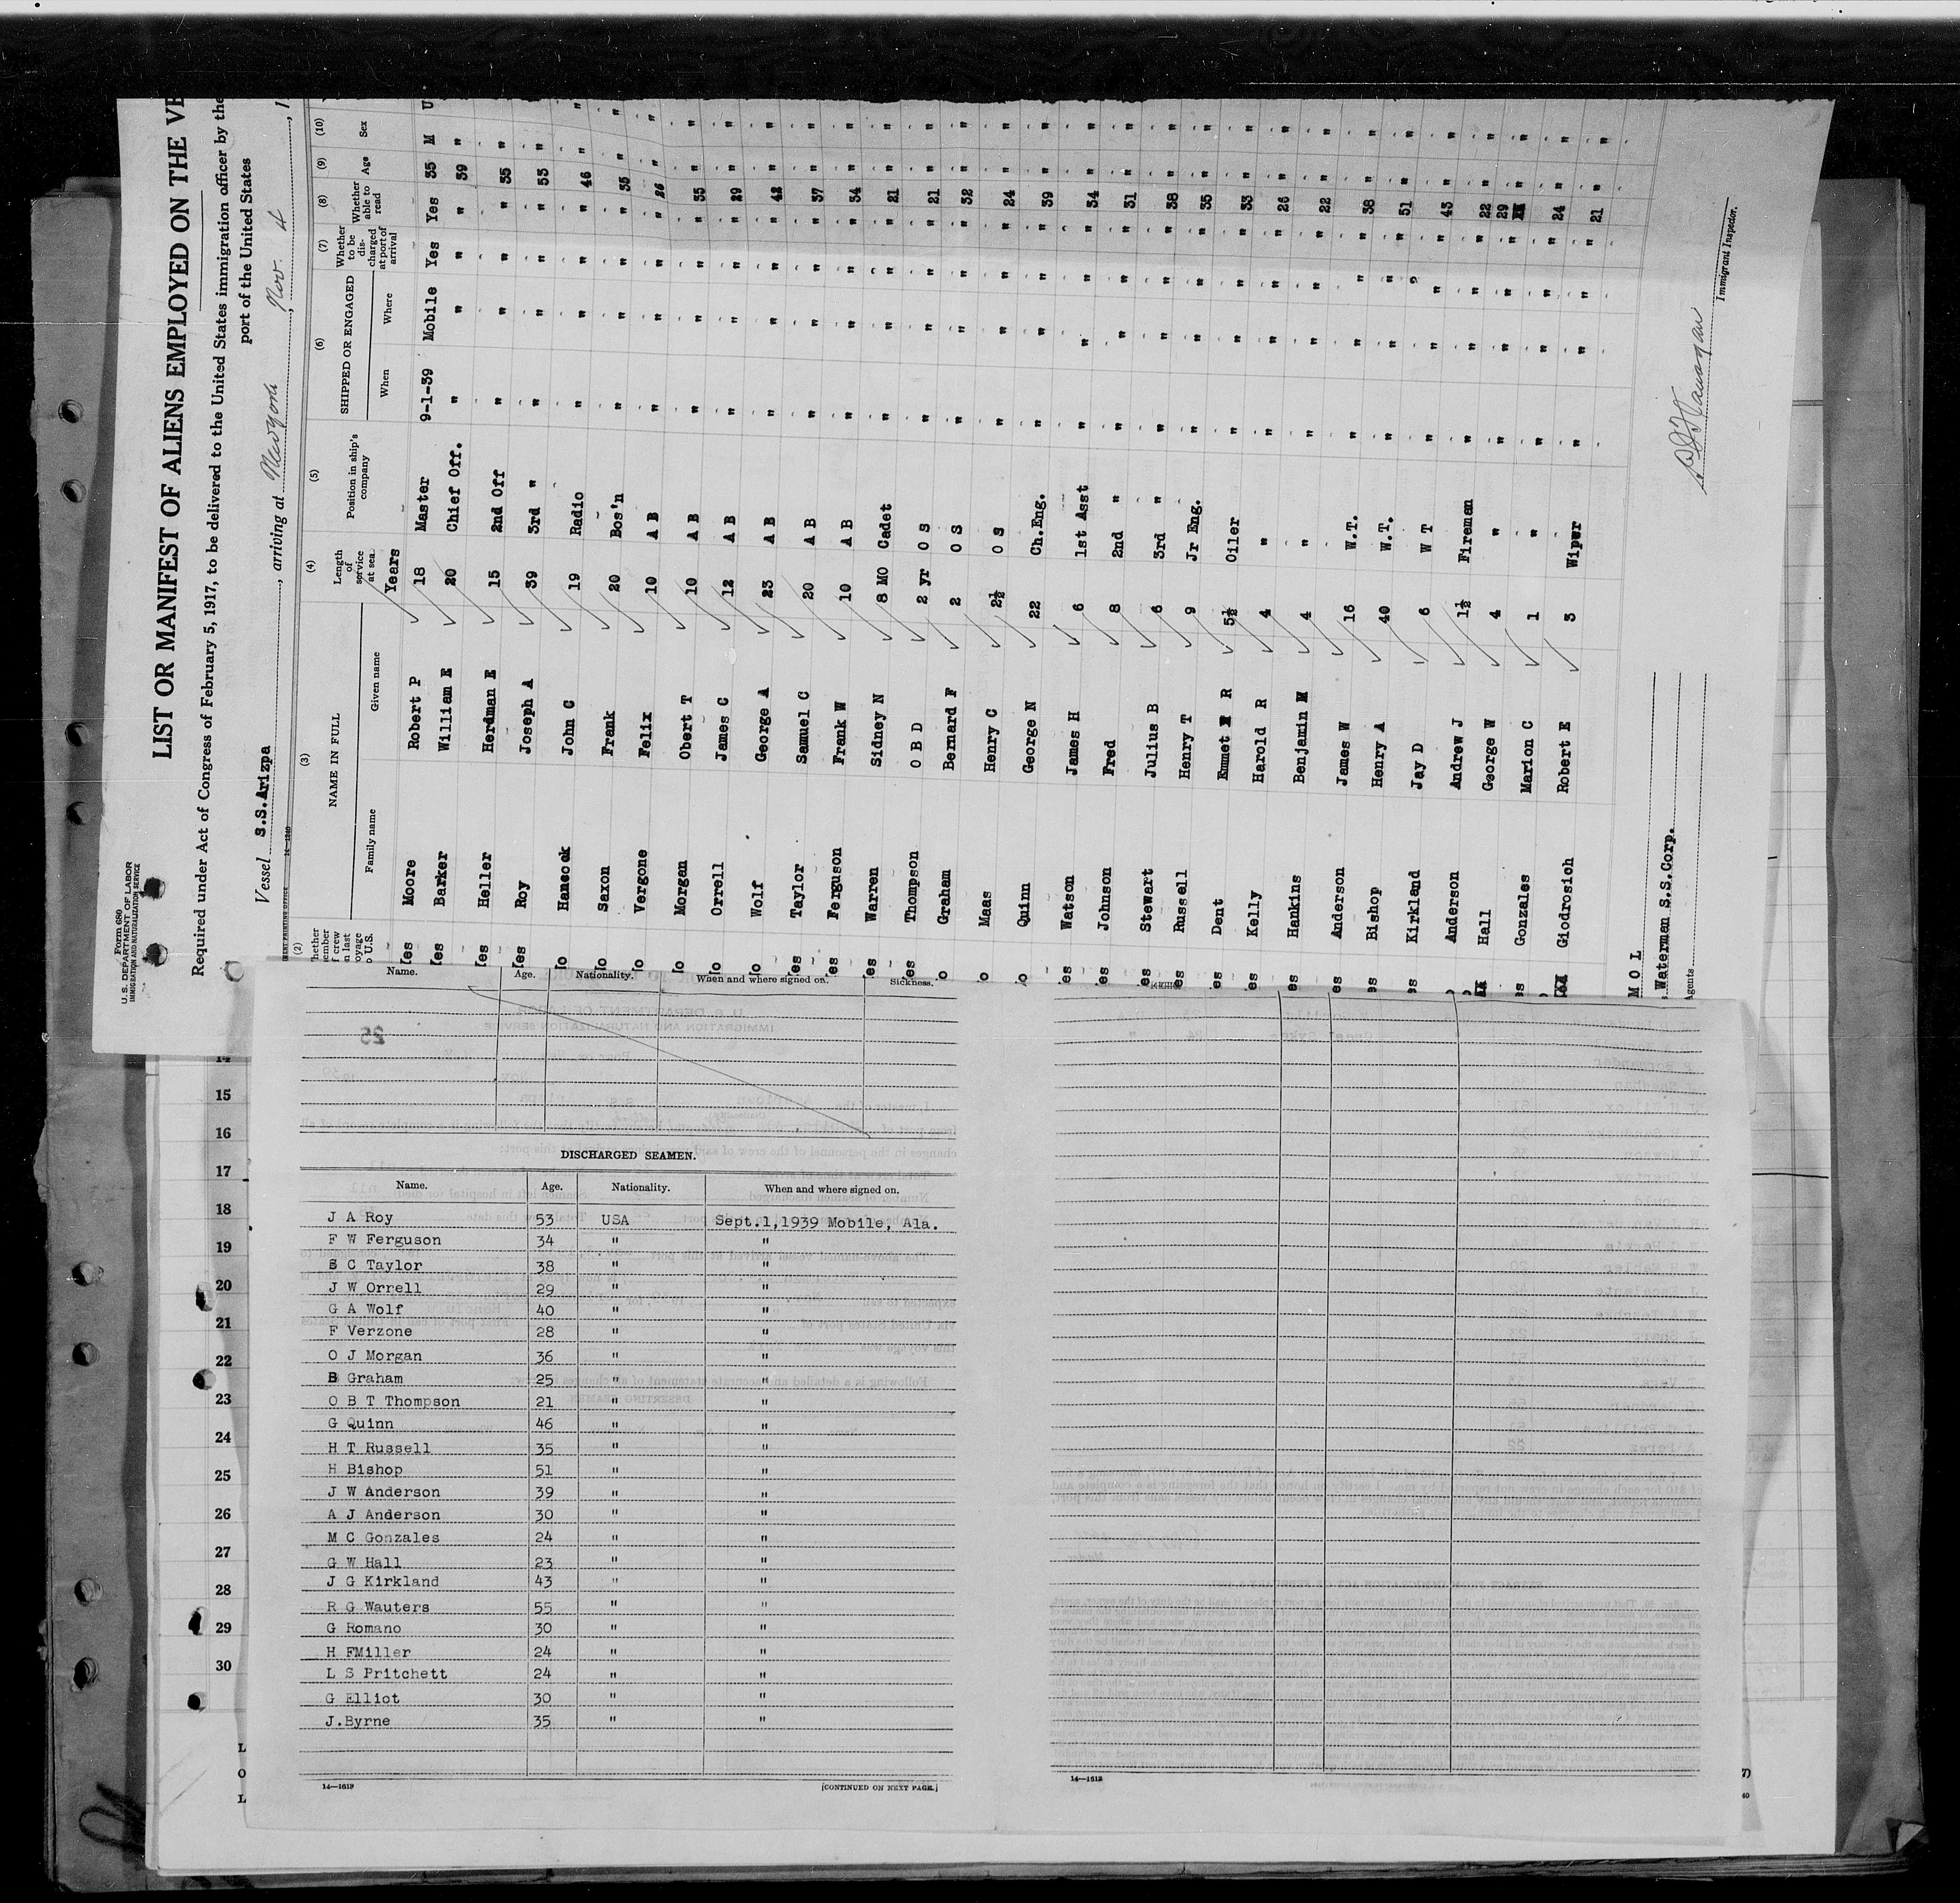 Form 680
U. S. DEPARTMENT OF LABOR
IMMIGRATION AND NATURALIZATION SERVICE
LIST OR MANIFEST OF ALIENS EMPLOYED ON THE VE
Required under Act of Congress of February 5, 1917, to be delivered to the United States immigration officer by the
port of the United States
Vessel S.S.Arizpa, arriving at Newyork, Nov. 4, 1
14—1240
(2) (3) (4) (5) (6) (7) (8) (9) (10)
NAME IN FULL Length of service at sea Position in ship's company SHIPPED OR ENGAGED Whether to be discharged at port of arrival Whether able to read Age Sex
Family name Given name When Where
Years
es Moore Robert P 18 Master 9-1-39 Mobile Yes Yes 35 M U
es Barker William E 20 Chief Off. " " " " 39 "
es Heller Herdman E 15 2nd Off " " " " 35 "
es Roy Joseph A 39 3rd " " " " " 53 "
o Hancock John C 19 Radio " " " 46 " "
o Saxon Frank 20 Bos'n " " " " 35 " "
o Vergone Felix 10 A B " " " " 26 "
o Morgan Obert T 10 A B " " " " 35 " "
o Orrell James C 12 A B " " " " 29 " "
o Wolf George A 23 A B " " " " 42 " "
es Taylor Samuel C 20 A B " " " " 37 " "
es Ferguson Frank W 10 A B " " " " 34 " "
es Warren Sidney N 8 MO Cadet " " " " 21 " "
es Thompson O B D 2 yr O S " " " " 21 " "
o Graham Bernard F 2 O S " " " " 32 " "
o Maas Henry C 2½ O S " " " " 24 " "
o Quinn George N 22 Ch.Eng. " " " " 39 " "
es Watson James H 6 1st Asst " " " " 34 " "
es Johnson Fred 8 2nd " " " " " 31 " "
es Stewart Julius B 6 3rd " " " " " 38 " "
es Russell Henry T 9 Jr Eng. " " " " 35 " "
es Dent Emmet R 5½ Oiler " " " " 33 " "
es Kelly Harold R 4 " " " " " 26 " "
es Hankins Benjamin M 4 " " " " " 22 " "
es Anderson James W 16 W.T. " " " " 38 " "
es Bishop Henry A 40 W.T. " " " " 51 " "
es Kirkland Jay D 6 W T " " " " 43 " "
Anderson Andrew J 1½ Fireman " " " " 22 " "
Hall George W 4 " " " " " 29 " "
es Gonzales Marion C 1 " " " " " 24 " "
Giodrosich Robert E 3 Wiper " " " " 21 " "
M O L
Waterman S.S.Corp.
Agents
Immigrant Inspector.
Name. Age. Nationality. When and where signed on. Sickness.
DISCHARGED SEAMEN.
Name. Age. Nationality. When and where signed on.
J A Roy 53 USA Sept.1,1939 Mobile, Ala.
F W Ferguson 34 " "
S C Taylor 38 " "
J W Orrell 29 " "
G A Wolf 40 " "
F Verzone 28 " "
O J Morgan 36 " "
B Graham 25 " "
O B T Thompson 21 " "
G Quinn 46 " "
H T Russell 35 " "
H Bishop 51 " "
J W Anderson 39 " "
A J Anderson 30 " "
M C Gonzales 24 " "
G W Hall 23 " "
J G Kirkland 43 " "
R G Wauters 55 " "
G Romano 30 " "
H FMiller 24 " "
L S Pritchett 24 " "
G Elliot 30 " "
J.Byrne 35 " "
14—1613 [CONTINUED ON NEXT PAGE.]
14—1613
14
15
16
17
18
19
20
21
22
23
24
25
26
27
28
29
30
L
O
L